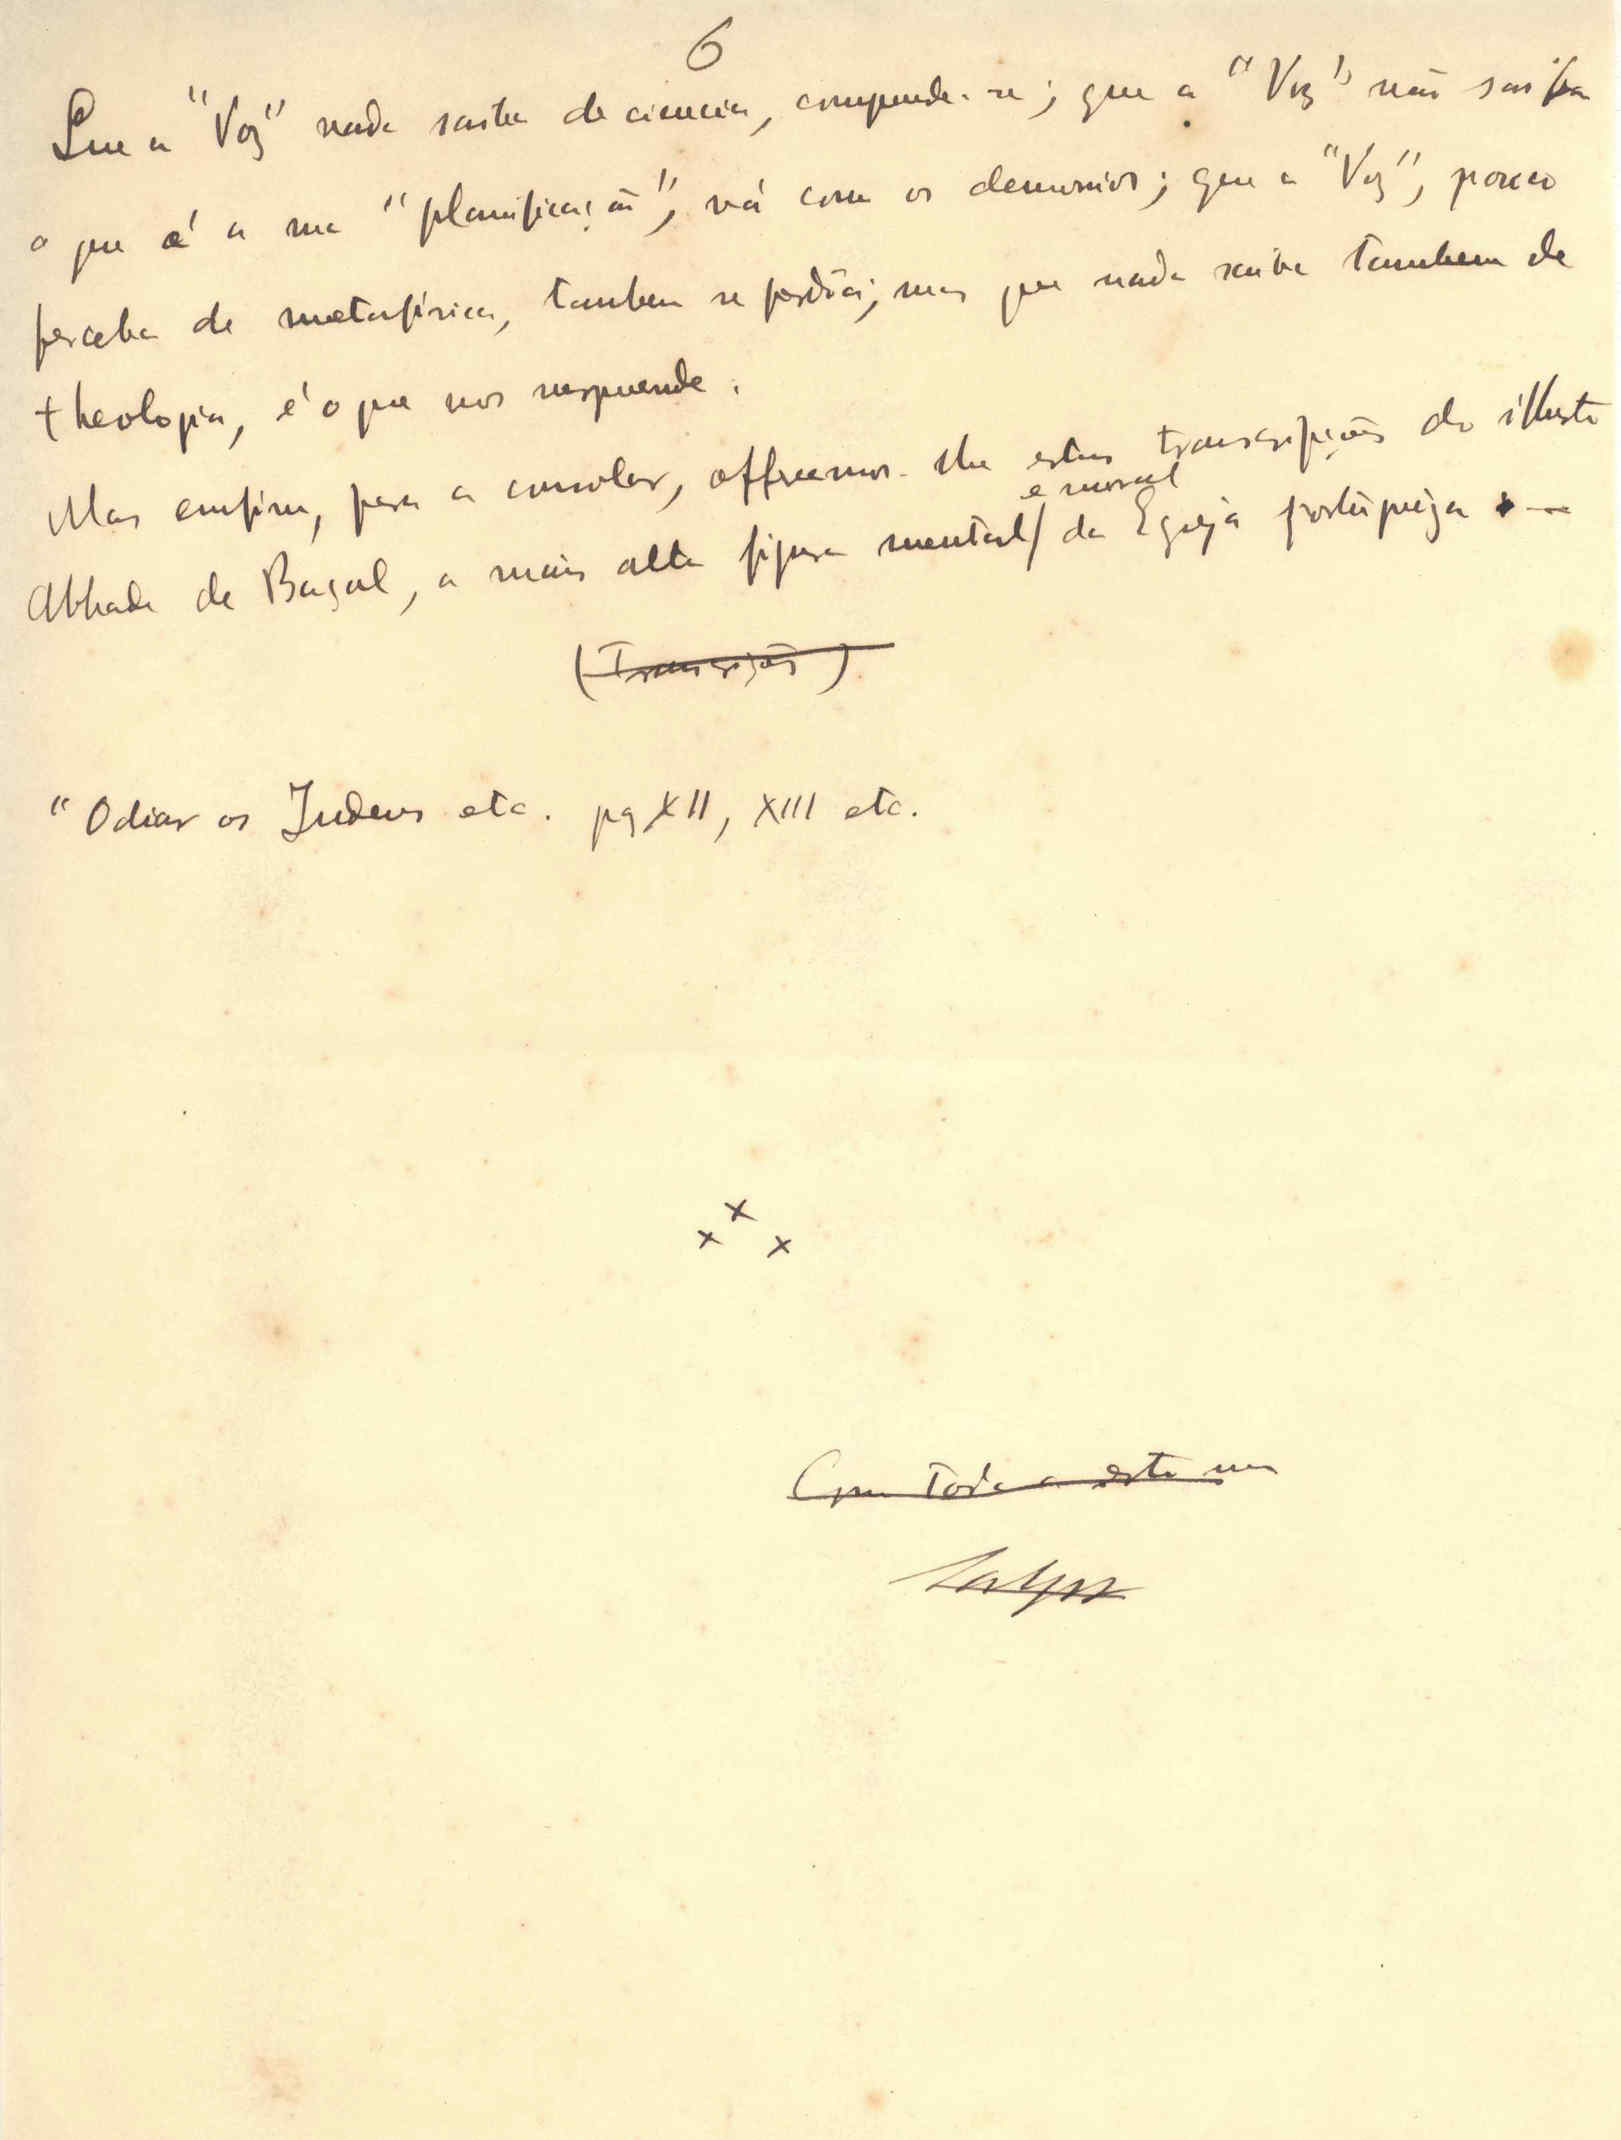 6
Que a "Voz" nada saiba de ciencia, comprende-se; que a "Voz" não saiba
o que é a sua "planificação", vá com os demonios; que a "Voz", pouco
perceba de metafisica, tambem se perdôa; mas que nada saiba tambem de
theologia, é o que nos surprende.
Mas emfim, para a consolar, offrecemos-lhe estas transcripções do illustre
e moral
Abbade de Baçal, a mais alta figura mental da Egreja portugueza
(Transcrições)
"Odiar os Judeus etc. pg XII, XIII etc.
x
x x
Com toda a estima